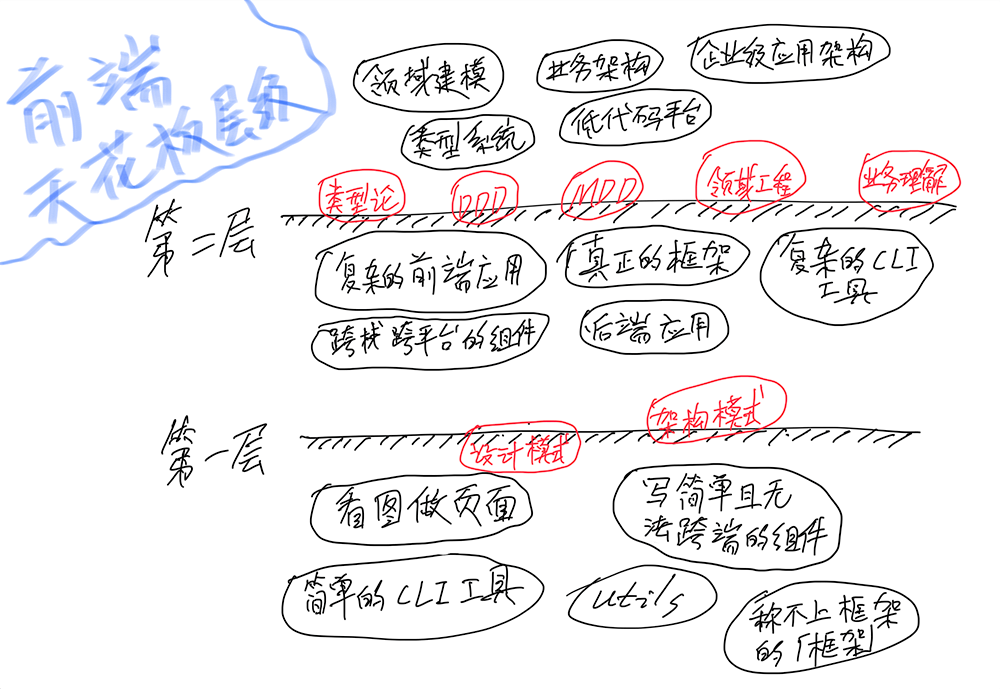 前端
天花板层级
领域建模
业务架构
企业级应用架构
类型系统
低代码平台
类型论
DDD
MDD
领域工程
业务理解
第二层
复杂的前端应用
真正的框架
复杂的CLI
工具
跨栈跨平台的组件
后端应用
架构模式
第一层
设计模式
看图做页面
写简单且无
法跨端的组件
简单的CLI工具
utils
称不上框架
的「框架」